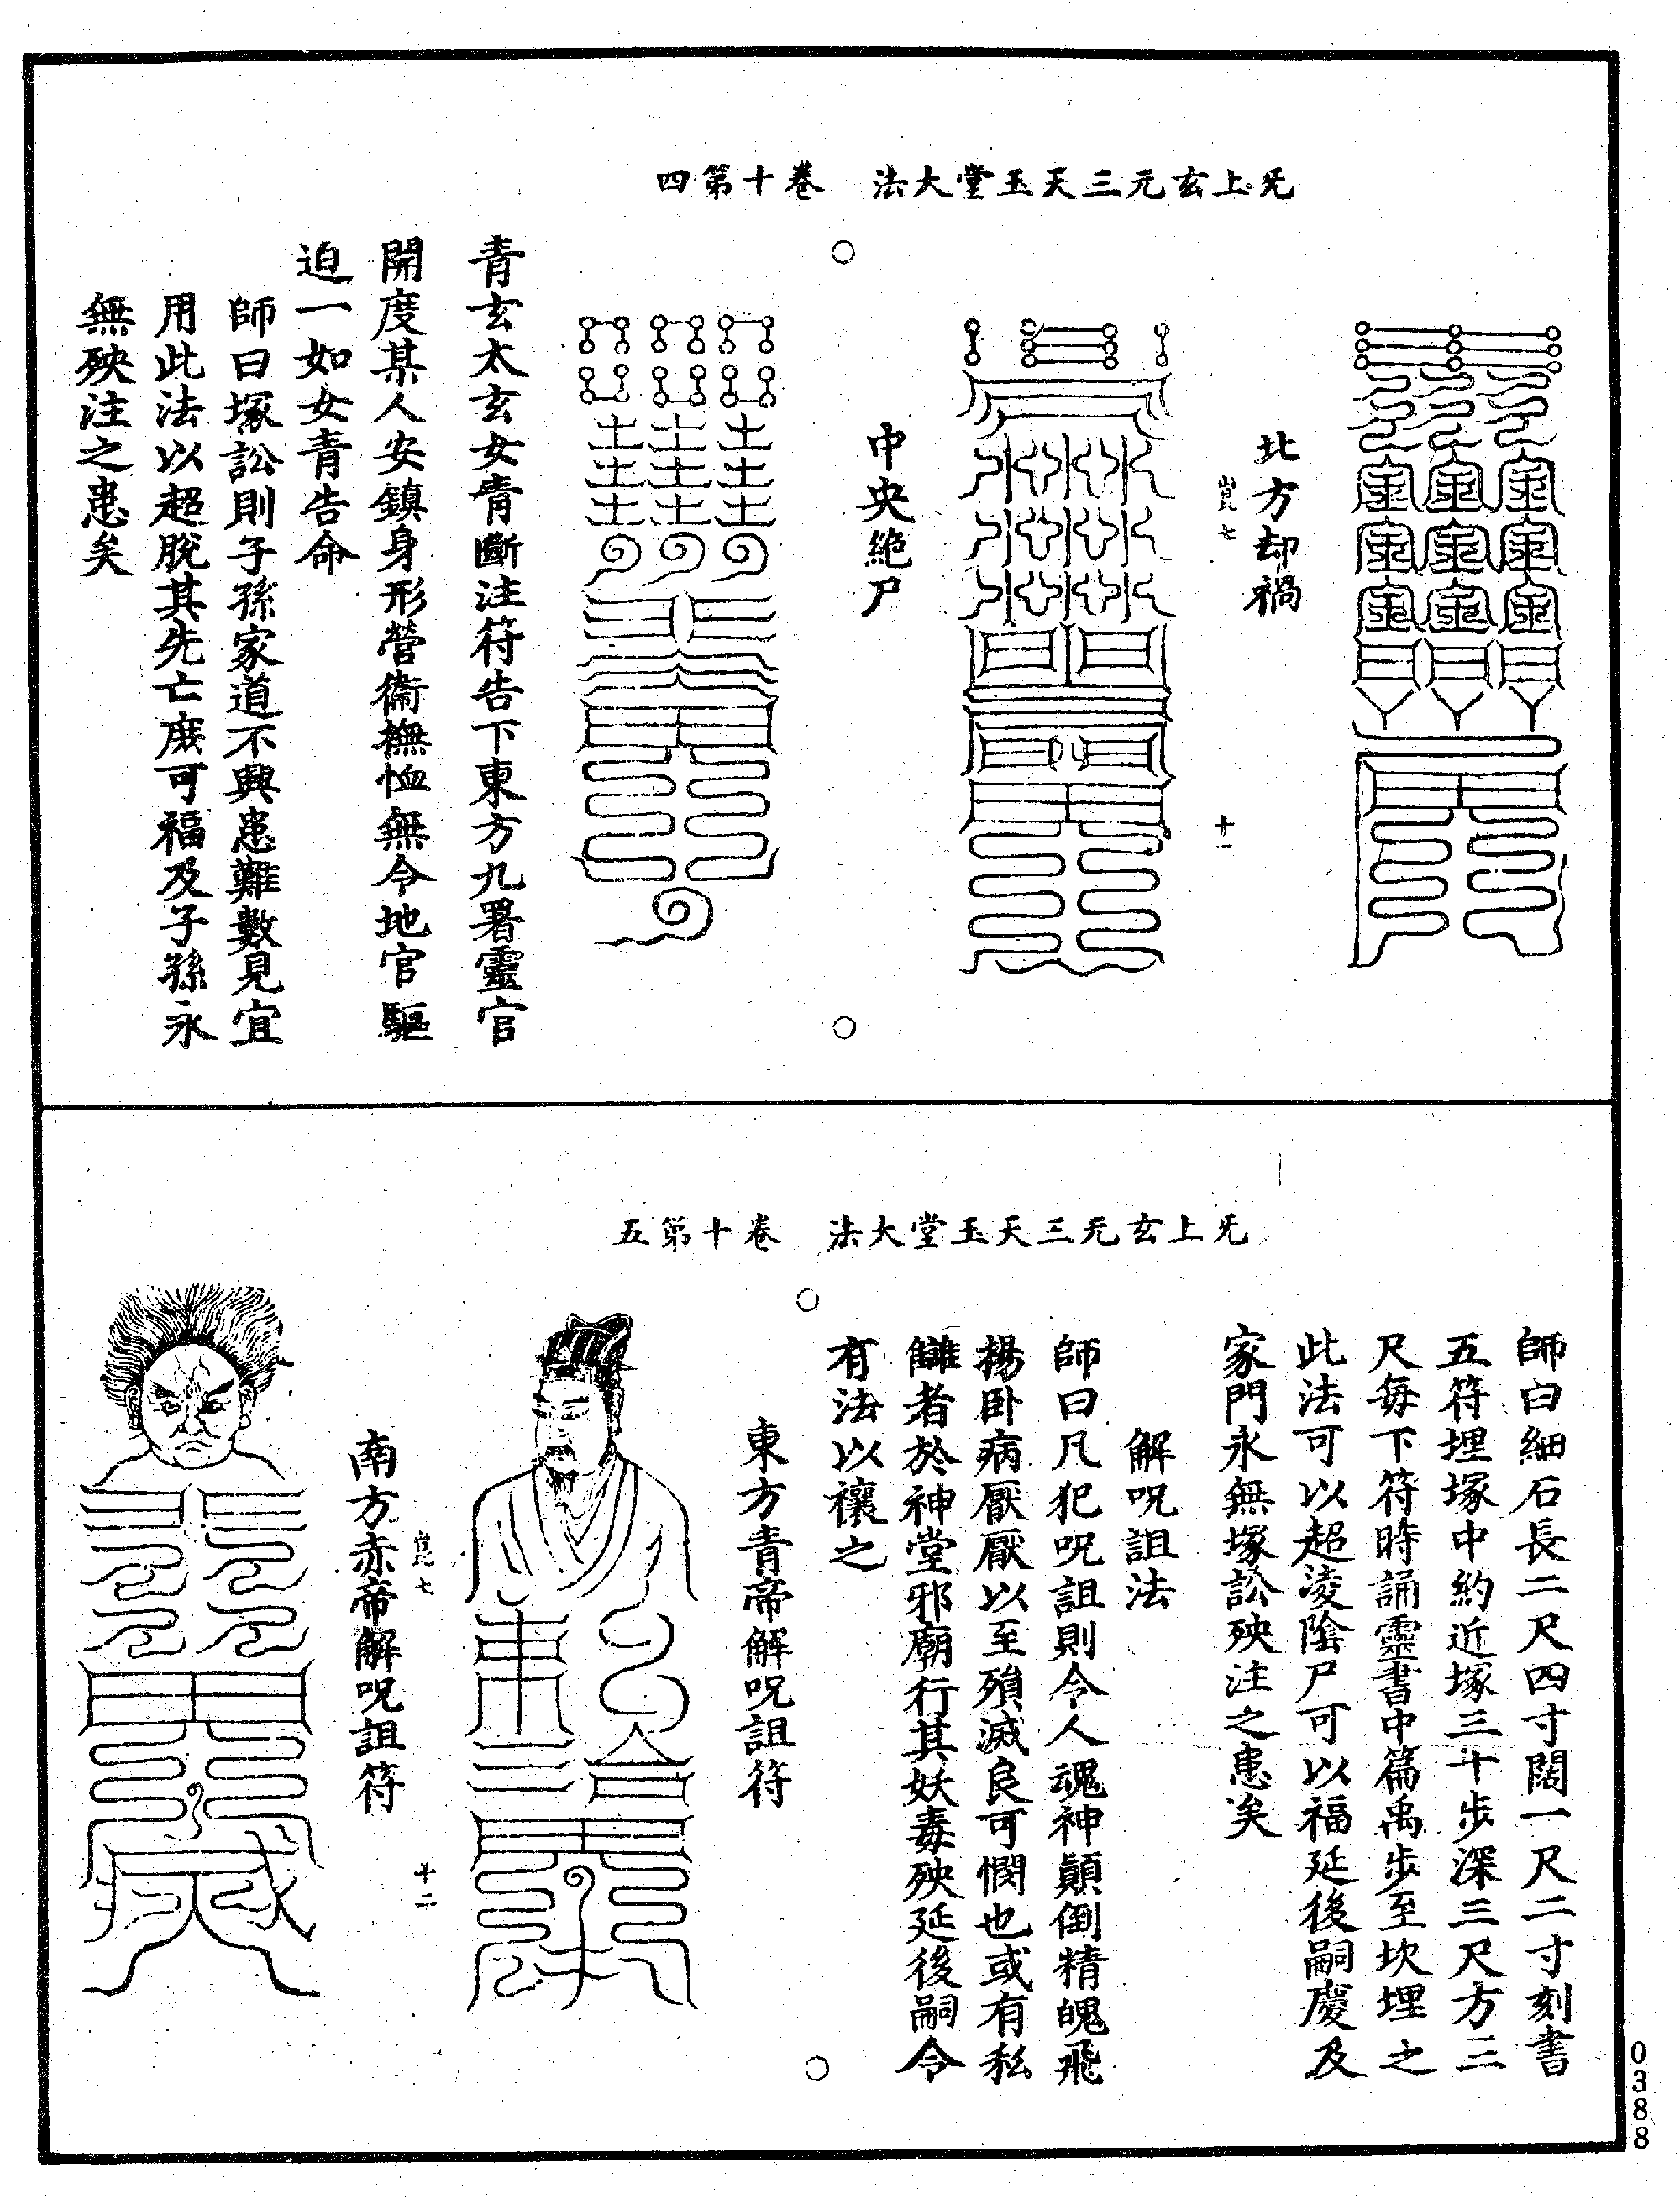 无上玄元三天玉堂大法　卷十第四
北方却禍
崑七　十一
中央絶尸
青玄太玄女青斷注符告下東方九署靈官
開度某人安鎮身形營衞撫恤無令地官驅
迫一如女青告命
師曰塚訟則子孫家道不興患難數見宜
用此法以超脫其先亡庶可福及子孫永
無殃注之患矣
无上玄元三天玉堂大法　卷十第五
師曰細石長二尺四寸闊一尺二寸刻書
五符埋塚中約近塚三十步深三尺方三
尺每下符時誦靈書中篇禹步至坎埋之
此法可以超淩陰尸可以福延後嗣慶及
家門永無塚訟殃注之患矣
解呪詛法
師曰凡犯呪詛則令人魂神顛倒精魄飛
揚卧病厭厭以至殞滅良可憫也或有私
讎者於神堂邪廟行其妖毒殃延後嗣令
有法以禳之
東方青帝解呪詛符
崑七　十二
南方赤帝解呪詛符
0388